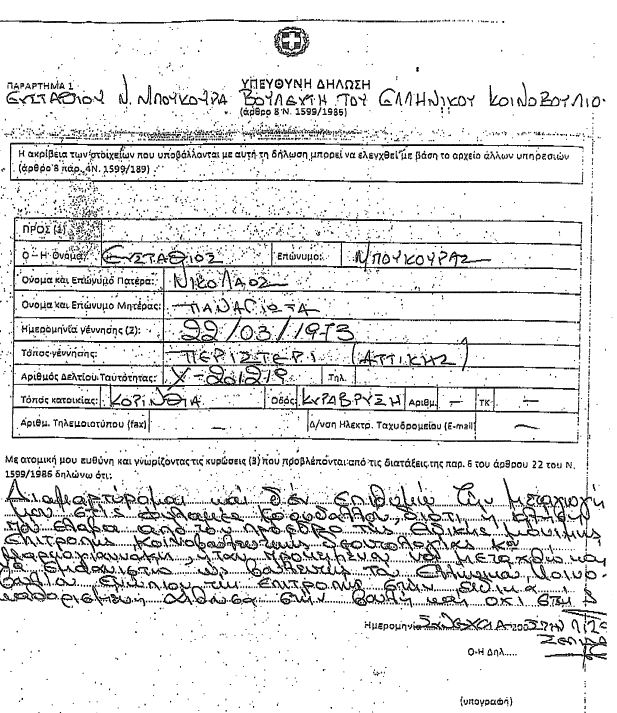 ΠΑΡΑΡΤΗΜΑ 1
ΥΠΕΥΘΥΝΗ ΔΗΛΩΣΗ
ΕΥΣΤΑΘΙΟΥ Ν. ΜΠΟΥΚΟΥΡΑ ΒΟΥΛΕΥΤΗ ΤΟΥ ΕΛΛΗΝΙΚΟΥ ΚΟΙΝΟΒΟΥΛΙΟ
(άρθρο 8 Ν. 1599/1986)
Η ακρίβεια των στοιχείων που υποβάλλονται με αυτή τη δήλωση μπορεί να ελεγχθεί με βάση το αρχείο άλλων υπηρεσιών
(άρθρο 8 παρ. 4Ν. 1599/189)
ΠΡΟΣ (1)
Ο – Η Όνομα: ΕΥΣΤΑΘΙΟΣ Επώνυμο: ΜΠΟΥΚΟΥΡΑΣ
Όνομα και Επώνυμο Πατέρα: ΝΙΚΟΛΑΟΣ
Όνομα και Επώνυμο Μητέρας: ΠΑΝΑΓΙΩΤΑ
Ημερομηνία γέννησης (2): 22/03/1973
Τόπος γέννησης: ΠΕΡΙΣΤΕΡΙ (ΑΤΤΙΚΗΣ)
Αριθμός Δελτίου Ταυτότητας: Τηλ.
Τόπος κατοικίας: ΚΟΡΙΝΘΙΑ Οδός: ΚΥΡΑΒΡΥΣΗ Αριθμ. – ΤΚ –
Αριθμ. Τηλεμοιοτύπου (fax) – Δ/νση Ηλεκτρ. Ταχυδρομείου (E-mail) –
Με ατομική μου ευθύνη και γνωρίζοντας τις κυρώσεις (3) που προβλέπονται από τις διατάξεις της παρ. 6 του άρθρου 22 του Ν.
1599/1986 δηλώνω ότι:
Διαμαρτύρομαι και δεν επιθυμώ την μεταγωγή
μου στις φυλακές Κορυδαλλού, διότι η κλήση
που έλαβα από τον πρόεδρο της
Επιτροπής Κοινοβουλευτικής Δεοντολογίας και
να
εμφανιστώ ως βουλευτής του
ενώπιον της επιτροπής στην ειδικά
αίθουσα στην βουλή και όχι στις
Ημερομηνία
Ο-Η Δηλ.....
(υπογραφή)